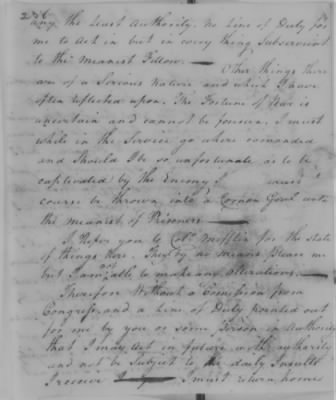 256
any the Least Authority. no Line of Duty for
me to Act in but in every thing Subservient
to the Meanest Fellow. —
Other things there
are of a Serious Nature and which I have
often reflected upon. The Fortune of War is
uncertain and cannot be foreseen. I must
while in the Service go where comanded
and Should I be so unfortunate as to be
captivated by the Enemy I must
course be thrown into a Common Goal with
the meanest of Prisoners —
I Refer you to Colo. Mifflin for the state
of things here. They by no means Please me
but I am able to make no Alterations. —
Therefore Without a Comission from
Congress and a Line of Duty pointed out
for me by you or some Person in Authority
that I may Act in future with authority
and not be Subject to the daily Insults
I receive I must return home